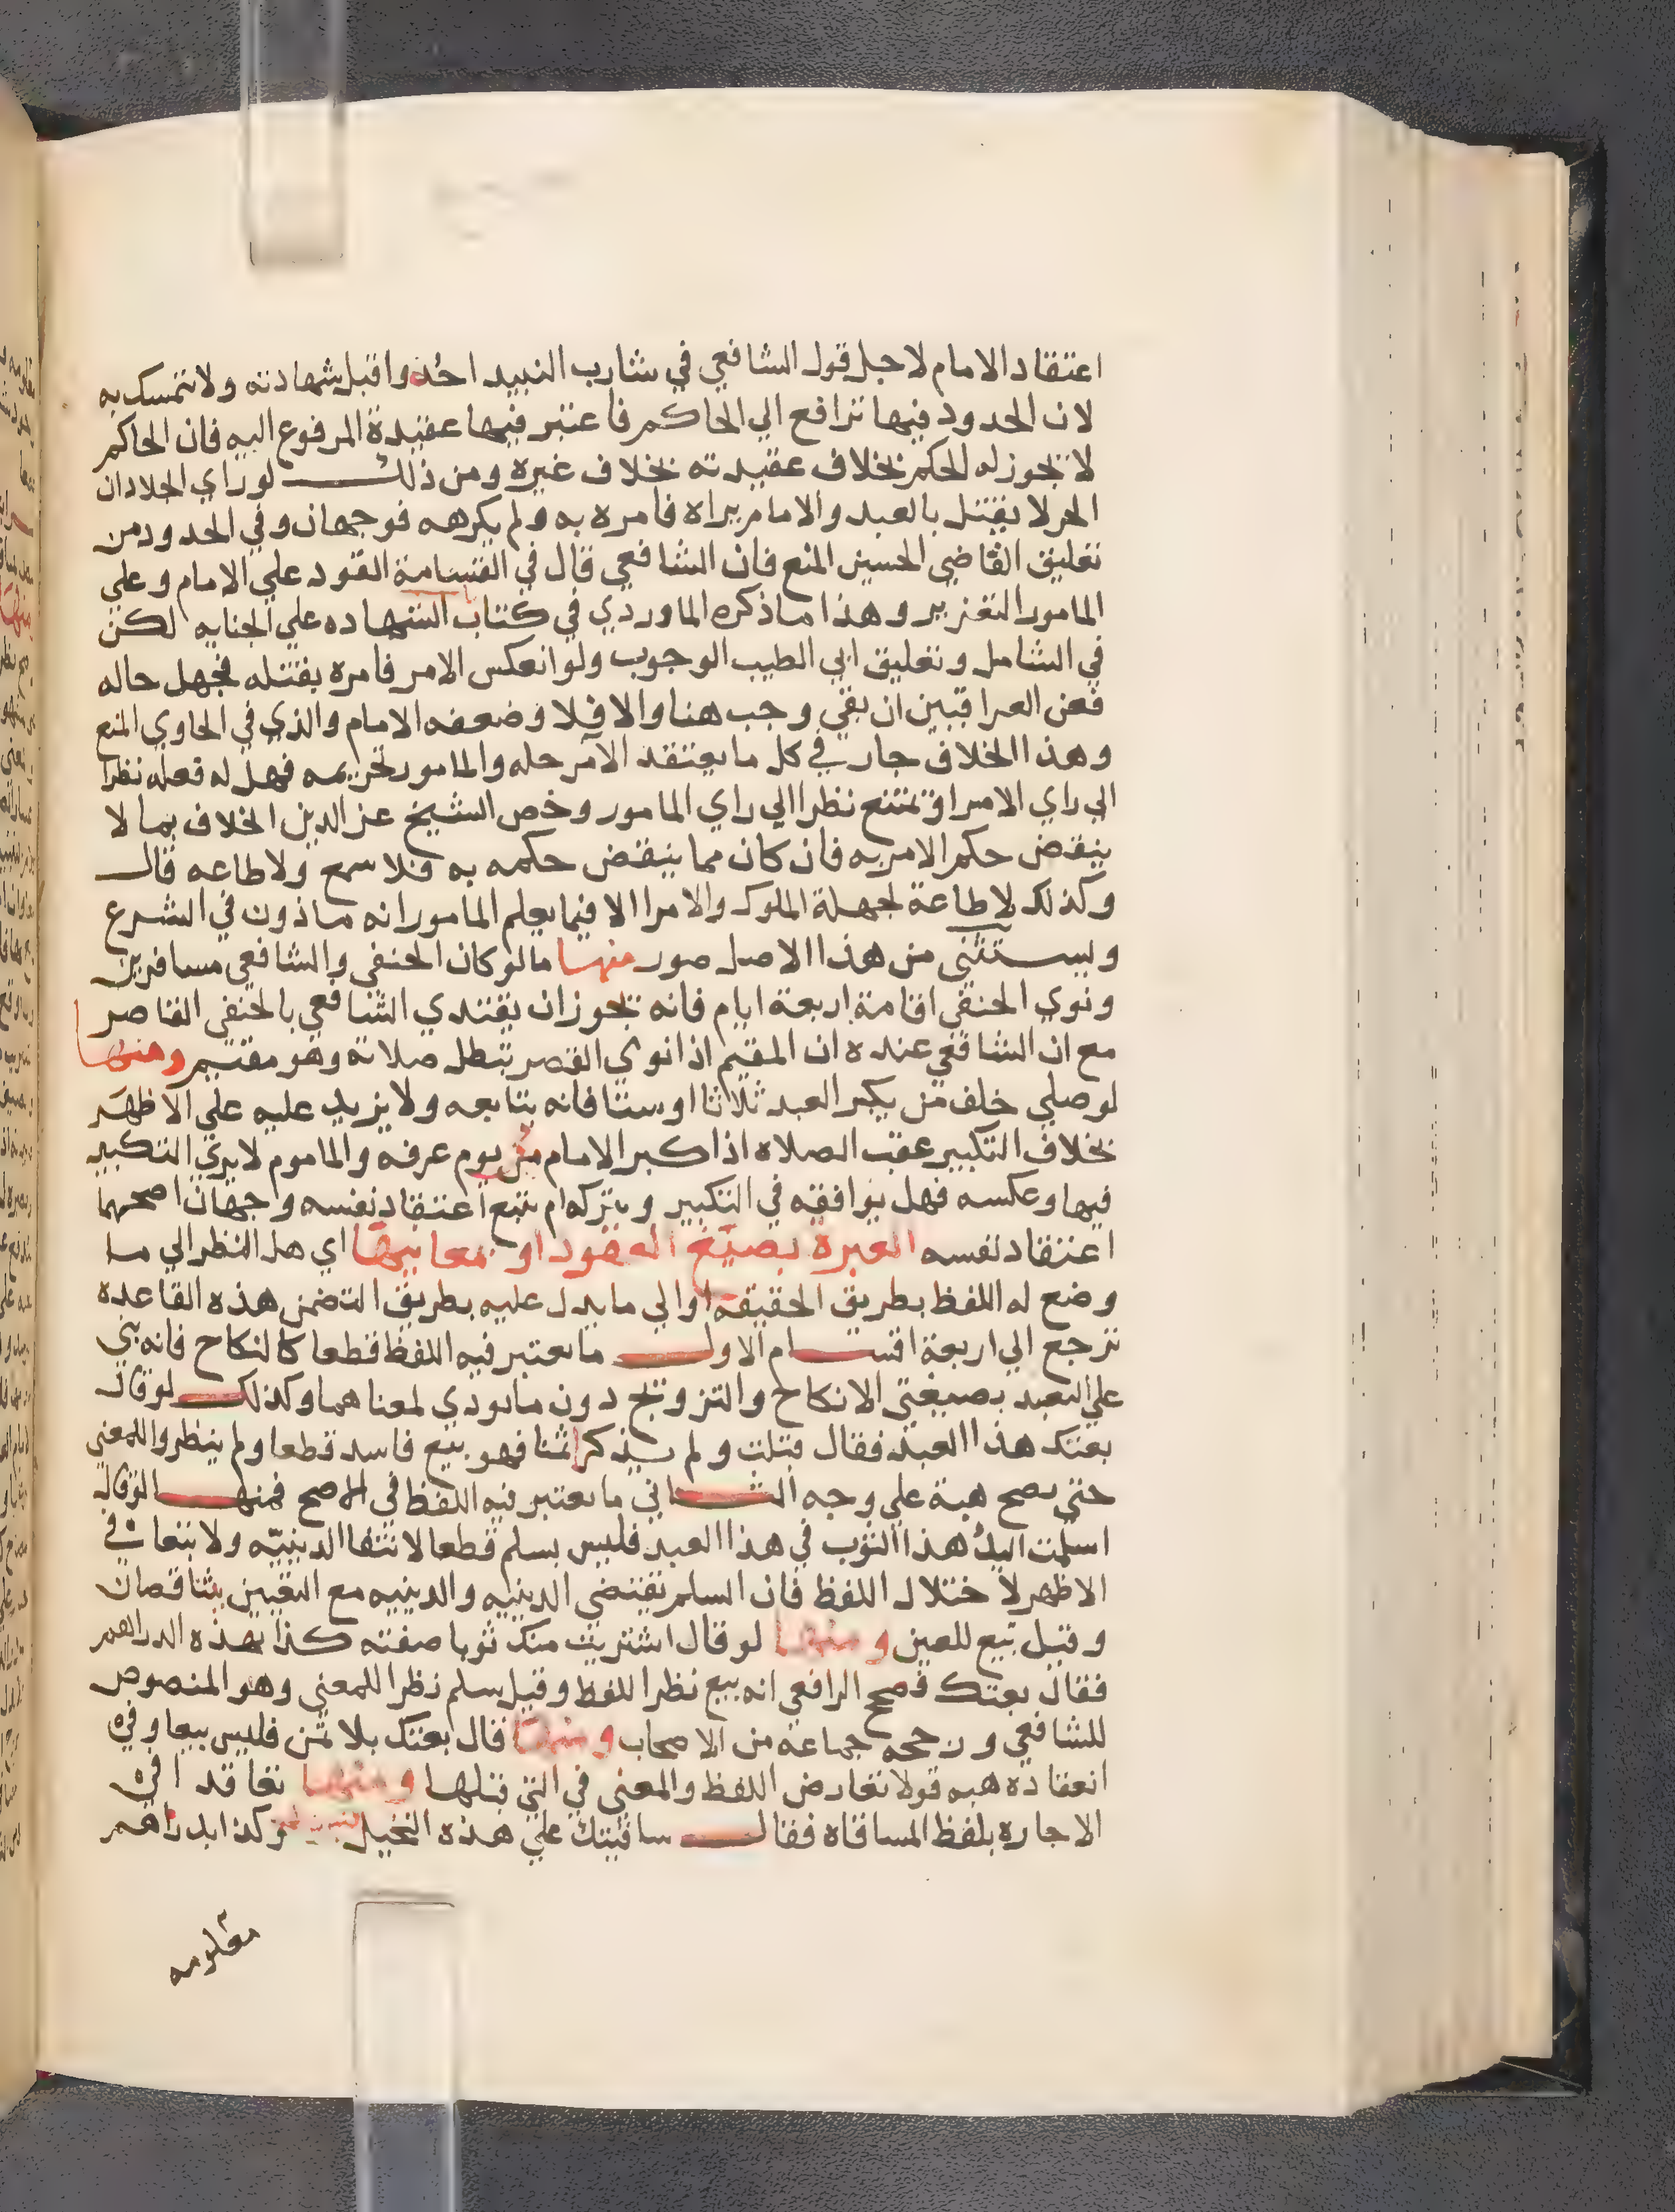 اعتقاد الامام لاجل قول الشافعي في شارب النبيذ احده واقبل شهادته ولا نتمسك به
لان الحدود فيها ترافع الي الحاكم فاعتبر فيها عقيدة المرفوع اليه فان الحاكم
لا يجوز له الحكم بخلاف عقيدته بخلاف غيره ومن ذلك لو راي الجلاد ان
الحر لا يقتل بالعبد والامام يراه فامره به ولم يكرهه فوجهان وفي الحدود من
تعليق القاضي الحسين المنع فان الشافعي قال في القسامة القود علي الامام وعلي
المامور التعزير وهذا ما ذكره الماوردي في كتاب الشهاده علي الجنايه لكن
في الشامل وتعليق ابي الطيب الوجوب ولو انعكس الامر فامره بقتله فجهل حاله
فعن العراقيين ان بقي وجب هنا والا فلا وضعفه الامام والذي في الحاوي المنع
وهذا الخلاف جار في كل ما يعتقد الآمر حله والمامور تحريمه فهل له فعله نظرا
الي راي الامر او يمتنع نظرا الي راي المامور وخص الشيخ عز الدين الخلاف بما لا
ينقض حكم الامر به فان كان مما ينقض حكمه به فلا سمع ولا طاعه قال
وكذلك لا طاعة لجهلة الملوك والامرا الا فيما يعلم المامور انه ماذون في الشرع
ويستثني من هذا الاصل صور منها ما لو كان الحنفي والشافعي مسافرين
ونوي الحنفي اقامة اربعة ايام فانه يجوز ان يقتدي الشافعي بالحنفي القاصر
مع ان الشافعي عنده ان المقيم اذا نوي القصر تبطل صلاته وهو مقيم ومنها
لو صلي خلف من يكبر العيد ثلاثا او ستا فانه يتابعه ولا يزيد عليه علي الاظهر
بخلاف التكبير عقب الصلاه اذا كبر الامام من يوم عرفه والماموم لا يري التكبير
فيها وعكسه فهل يوافقه في التكبير وتركه ام يتبع اعتقاد نفسه وجهان اصحهما
اعتقاد نفسه العبرة بصيغ العقود او بمعانيها اي هل النظر الي ما
وضع له اللفظ بطريق الحقيقة او الي ما يدل عليه بطريق التضمن هذه القاعده
ترجع الي اربعة اقسام الاول ما يعتبر فيه اللفظ قطعا كالنكاح فانه بني
علي التعبد بصيغتي الانكاح والتزويج دون ما يودي لمعناهما وكذلك لو قال
بعتك هذا العبد فقال قبلت ولم يذكر ثمنا فهو بيع فاسد قطعا ولم ينظروا للمعني
حتي يصح هبة علي وجه الثاني ما يعتبر فيه اللفظ في الاصح فمنها لو قال
اسلمت اليك هذا الثوب في هذا العبد فليس بسلم قطعا لانتفا الدينيّه ولا بيعا في
الاظهر لاختلال اللفظ فان السلم يقتضي الدينيه والدينيه مع التعيين يتناقصان
وقيل بيع للعين ومنها لو قال اشتريت منك ثوبا صفته كذا بهذه الدراهم
فقال بعتك فصحح الرافعي انه بيع نظرا للفظ وقيل سلم نظرا للمعني وهو المنصوص
للشافعي ورجحه جماعه من الاصحاب ومنها قال بعتك بلا ثمن فليس بيعا وفي
انعقاده هبه قولا تعارض اللفظ والمعني في التي قبلها ومنها تعاقدا في
الاجاره بلفظ المساقاه فقال ساقيتك علي هذه النخيل وكذا بدراهم
معلومه